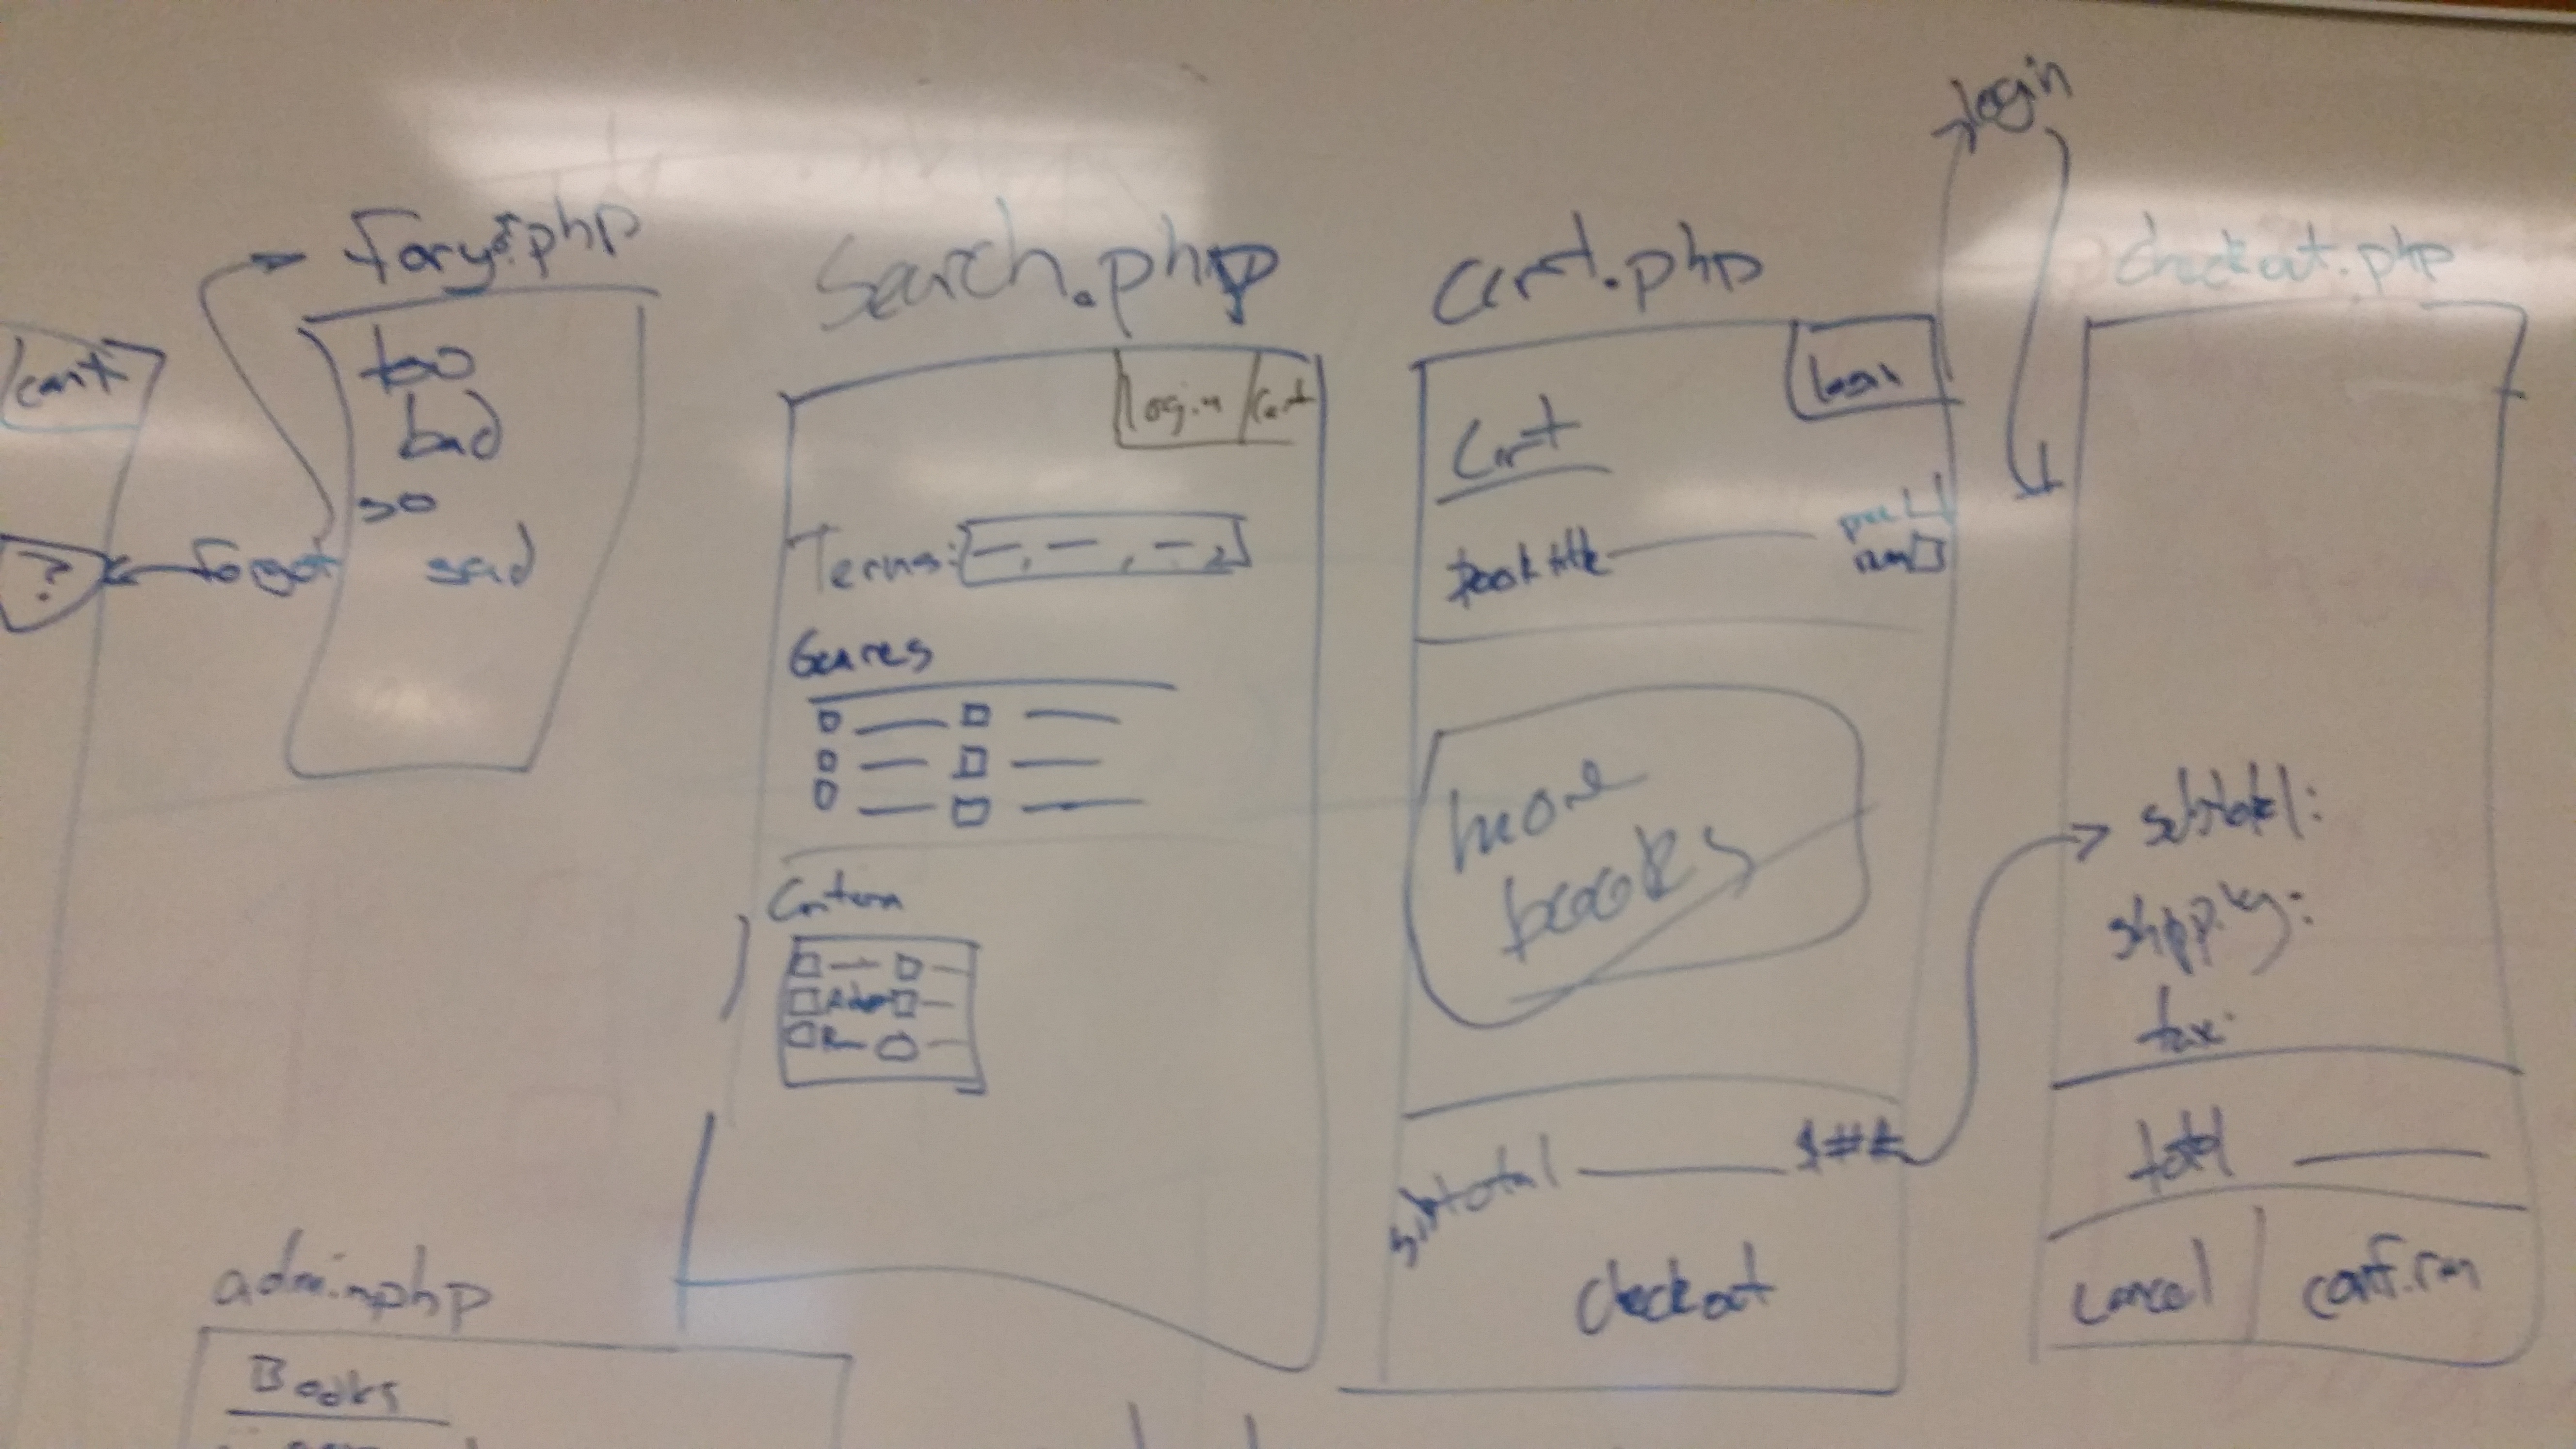 cart
?
forgot
forgot.php
too
bad
so
sad
search.php
login
cart
Terms:
Genres
Criteria
cart.php
login
Cart
Book title
price
num
more
books
subtotal
$##
checkout
login
checkout.php
subtotal:
shipping:
tax:
total
cancel
confirm
admin.php
Books